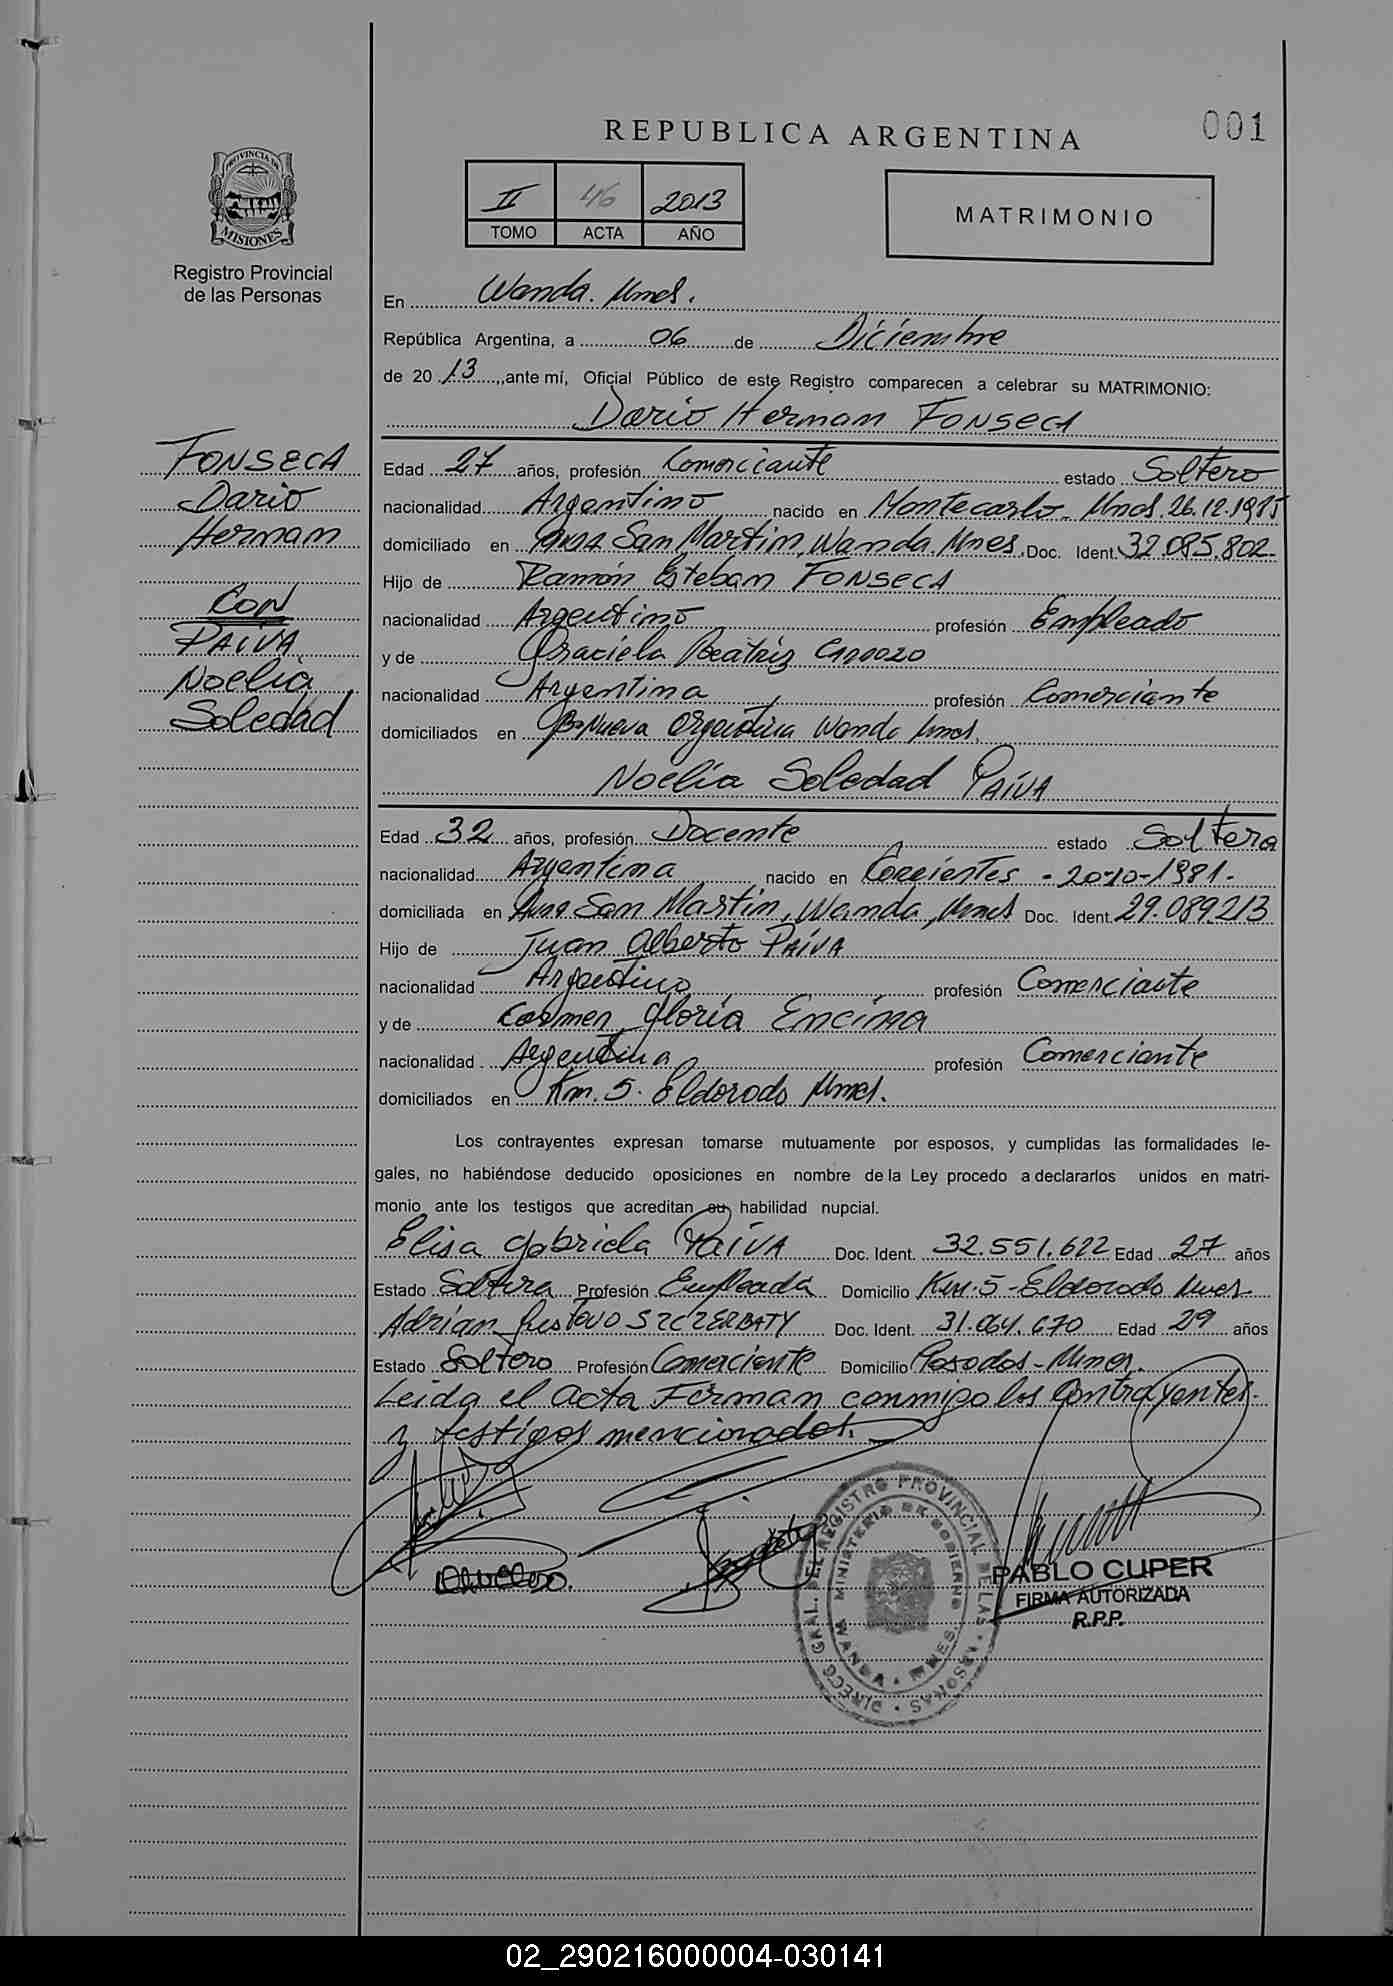 001
REPUBLICA ARGENTINA
PROVINCIA DE
MISIONES
Registro Provincial
de las Personas
II 46 2013
TOMO ACTA AÑO
MATRIMONIO
En Wanda. Mnes.
República Argentina, a 06 de Diciembre
de 20 13, ante mí, Oficial Público de este Registro comparecen a celebrar su MATRIMONIO:
Dario Hernan FONSECA
FONSECA
Dario
Hernan
CON
PAIVA
Noelia
Soledad
Edad 27 años, profesión Comerciante estado Soltero
nacionalidad Argentino nacido en Montecarlo - Mnes. 26.12.1985
domiciliado en San Martin, Wanda. Mnes. Doc. Ident. 32.085.802-
Hijo de Ramón Esteban FONSECA
nacionalidad Argentino profesión Empleado
y de Graciela Beatriz CARDOZO
nacionalidad Argentina profesión Comerciante
domiciliados en Bº Nueva Argentina Wanda Mnes.
Noelia Soledad PAIVA
Edad 32 años, profesión Docente estado Soltera
nacionalidad Argentina nacido en Corrientes - 20-10-1981-
domiciliada en San Martin, Wanda, Mnes Doc. Ident. 29.089.213
Hijo de Juan Alberto PAIVA
nacionalidad Argentino profesión Comerciante
y de Carmen Gloria Encina
nacionalidad Argentina profesión Comerciante
domiciliados en Km. 5. Eldorado Mnes.
Los contrayentes expresan tomarse mutuamente por esposos, y cumplidas las formalidades le-
gales, no habiéndose deducido oposiciones en nombre de la Ley procedo a declararlos unidos en matri-
monio ante los testigos que acreditan su habilidad nupcial.
Elisa Gabriela PAIVA Doc. Ident. 32.551.622 Edad 27 años
Estado Soltera Profesión Empleada Domicilio Km. 5 - Eldorado Mnes
Adrián Gustavo SZCZERBATY Doc. Ident. 31.064.670 Edad 29 años
Estado Soltero Profesión Comerciante Domicilio Posadas - Mnes.
Leida el acta Firman conmigo los contrayentes
y testigos mencionados.
DIRECC GRAL. DEL REGISTRO PROVINCIAL DE LAS PERSONAS
MINISTERIO DE GOBIERNO
WANDA MNES.
PABLO CUPER
FIRMA AUTORIZADA
R.P.P.
02_290216000004-030141